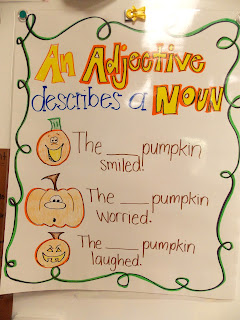 An Adjective
describes a Noun
The ___ pumpkin
smiled.
The ___ pumpkin
worried.
The ___ pumpkin
laughed.